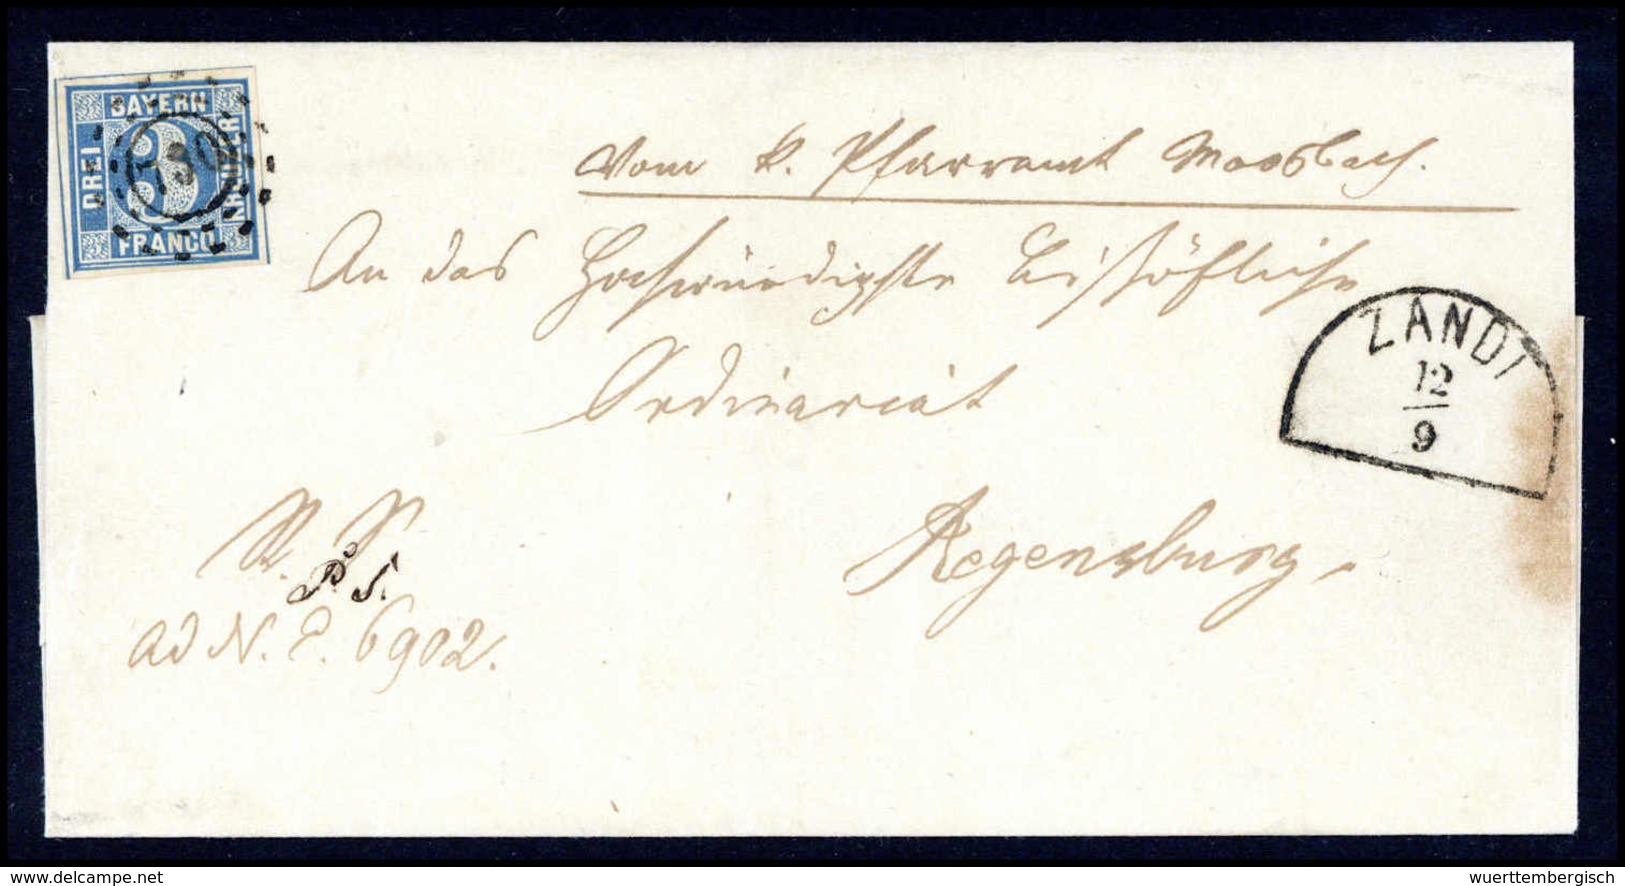 BAYERN
DREI
3
KREUZER
FRANCO
730
Vom k. Pfarramt Moosbach.
An das Hochwürdigste Bischöfliche
Ordinariat
ZANDT
12
9
Regensburg.
R. S.
P S.
ad N. E. 6902.
© delcampe.net
wuerttembergisch